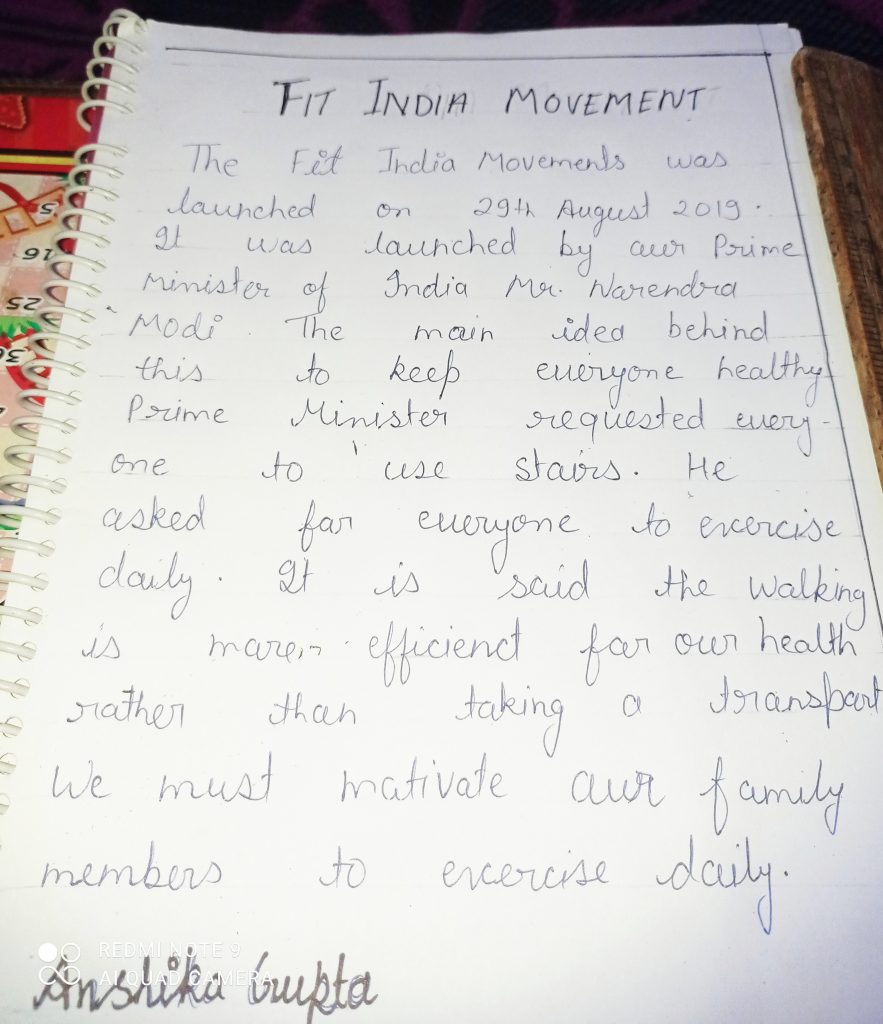 FIT INDIA MOVEMENT
The Fit India Movements was
launched on 29th August 2019.
It was launched by our Prime
Minister of India Mr. Narendra
Modi. The main idea behind
this to keep everyone healthy
Prime Minister requested every-
one to use stairs. He
asked for everyone to exercise
daily. It is said the walking
is more efficienct for our health
rather than taking a transport
We must motivate our family
members to excercise daily.
Anshika Gupta
REDMI NOTE 9
AI QUAD CAMERA
5
16
25